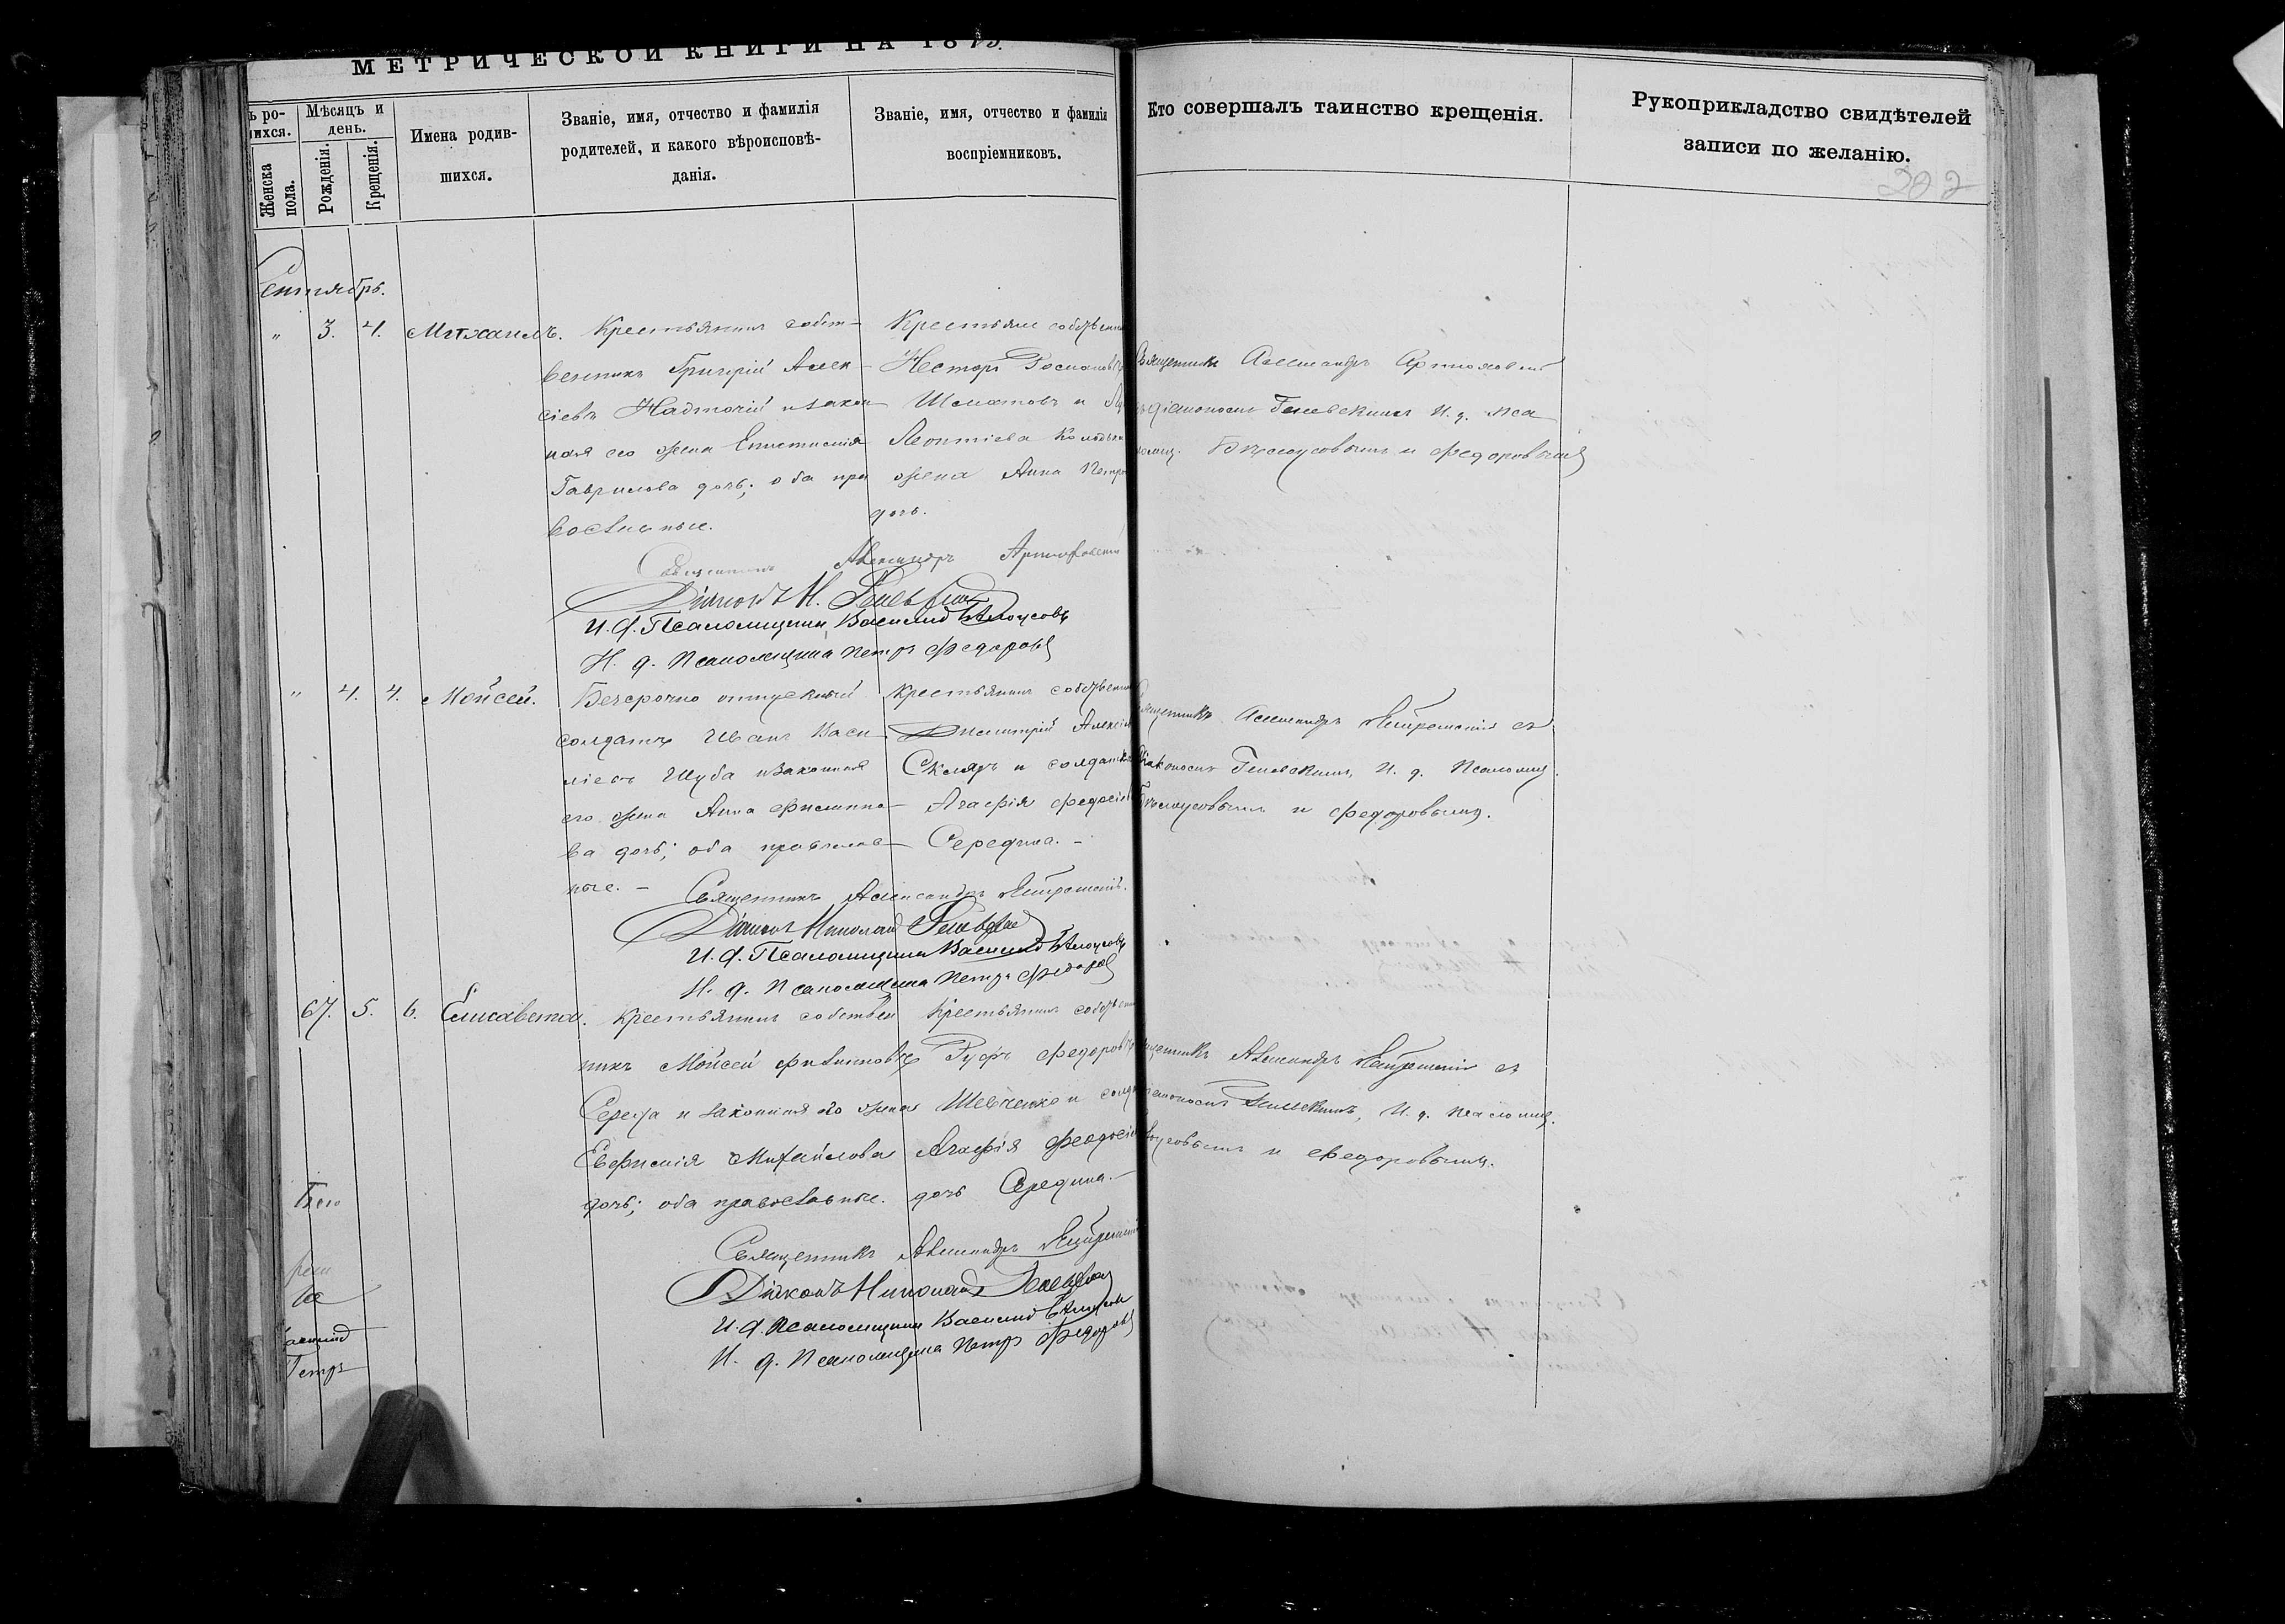 МЕТРИЧЕСКОЙ КНИГИ НА 1875.
ъ ро-
ихся.
Женска
пола.
Мѣсяцъ и
день.
Рожденія.
Крещенія.
Имена родив-
шихся.
Званіе, имя, отчество и фамилія
родителей, и какого вѣроисповѣ-
данія.
Званіе, имя, отчество и фамилія
воспріемниковъ.
Кто совершалъ таинство крещенія.
Рукоприкладство свидѣтелей
записи по желанію.
202
Сентябрь.
" 3. 4. Михаилъ.
Крестьянинъ собст-
венникъ Григорій Алек-
сіевъ Надточій и закон
ная его жена Епистимія
Гаврилова дочь; оба пра
вославные.
Крестьяне собствен
Несторъ
Леонтіева
жена Анна Петро
дочь.
Священникъ Александръ
діакономъ И. д. Пса
Бѣлоусовымъ и Федоровымъ
Священникъ Александръ
Діаконъ Н.
И. д. Псаломщика Василій Бѣлоусовъ
И. д. Псаломщика Петръ Федоровъ
" 4. 4. Мойсей.
Безсрочно отпускной
солдатъ Иванъ Васи
ліевъ Шуба и законная
его жена Анна Филиппо
ва дочь; оба православ
ные. –
Крестьянинъ собствен
Димитрій Алексіев
Скляръ и солдатка
Агафія Федосіев
Середина. –
Священникъ Александръ съ
Діакономъ И. д. Псаломщ.
Бѣлоусовымъ и Федоровымъ.
Священникъ Александръ
Діаконъ Николай
И. д. Псаломщика Василій Бѣлоусовъ
И. д. Псаломщика Петръ Федоровъ
67. 5. 6. Елисавета.
Крестьянинъ собствен
никъ Мойсей Филиповъ
Середа и законная его жена
Евфимія Михайлова
дочь; оба православные.
Крестьянинъ собствен
Федоровъ
Шевченко и солда
Агафія Феодосіе
дочь Середина. –
Александръ съ
И. д. Псаломщ.
и Федоровымъ.
Священникъ Александръ
Діаконъ Николай
И. д. Псаломщика Василій Бѣлоусовъ
И. д. Псаломщика Петръ Федоровъ
асилій
Петръ